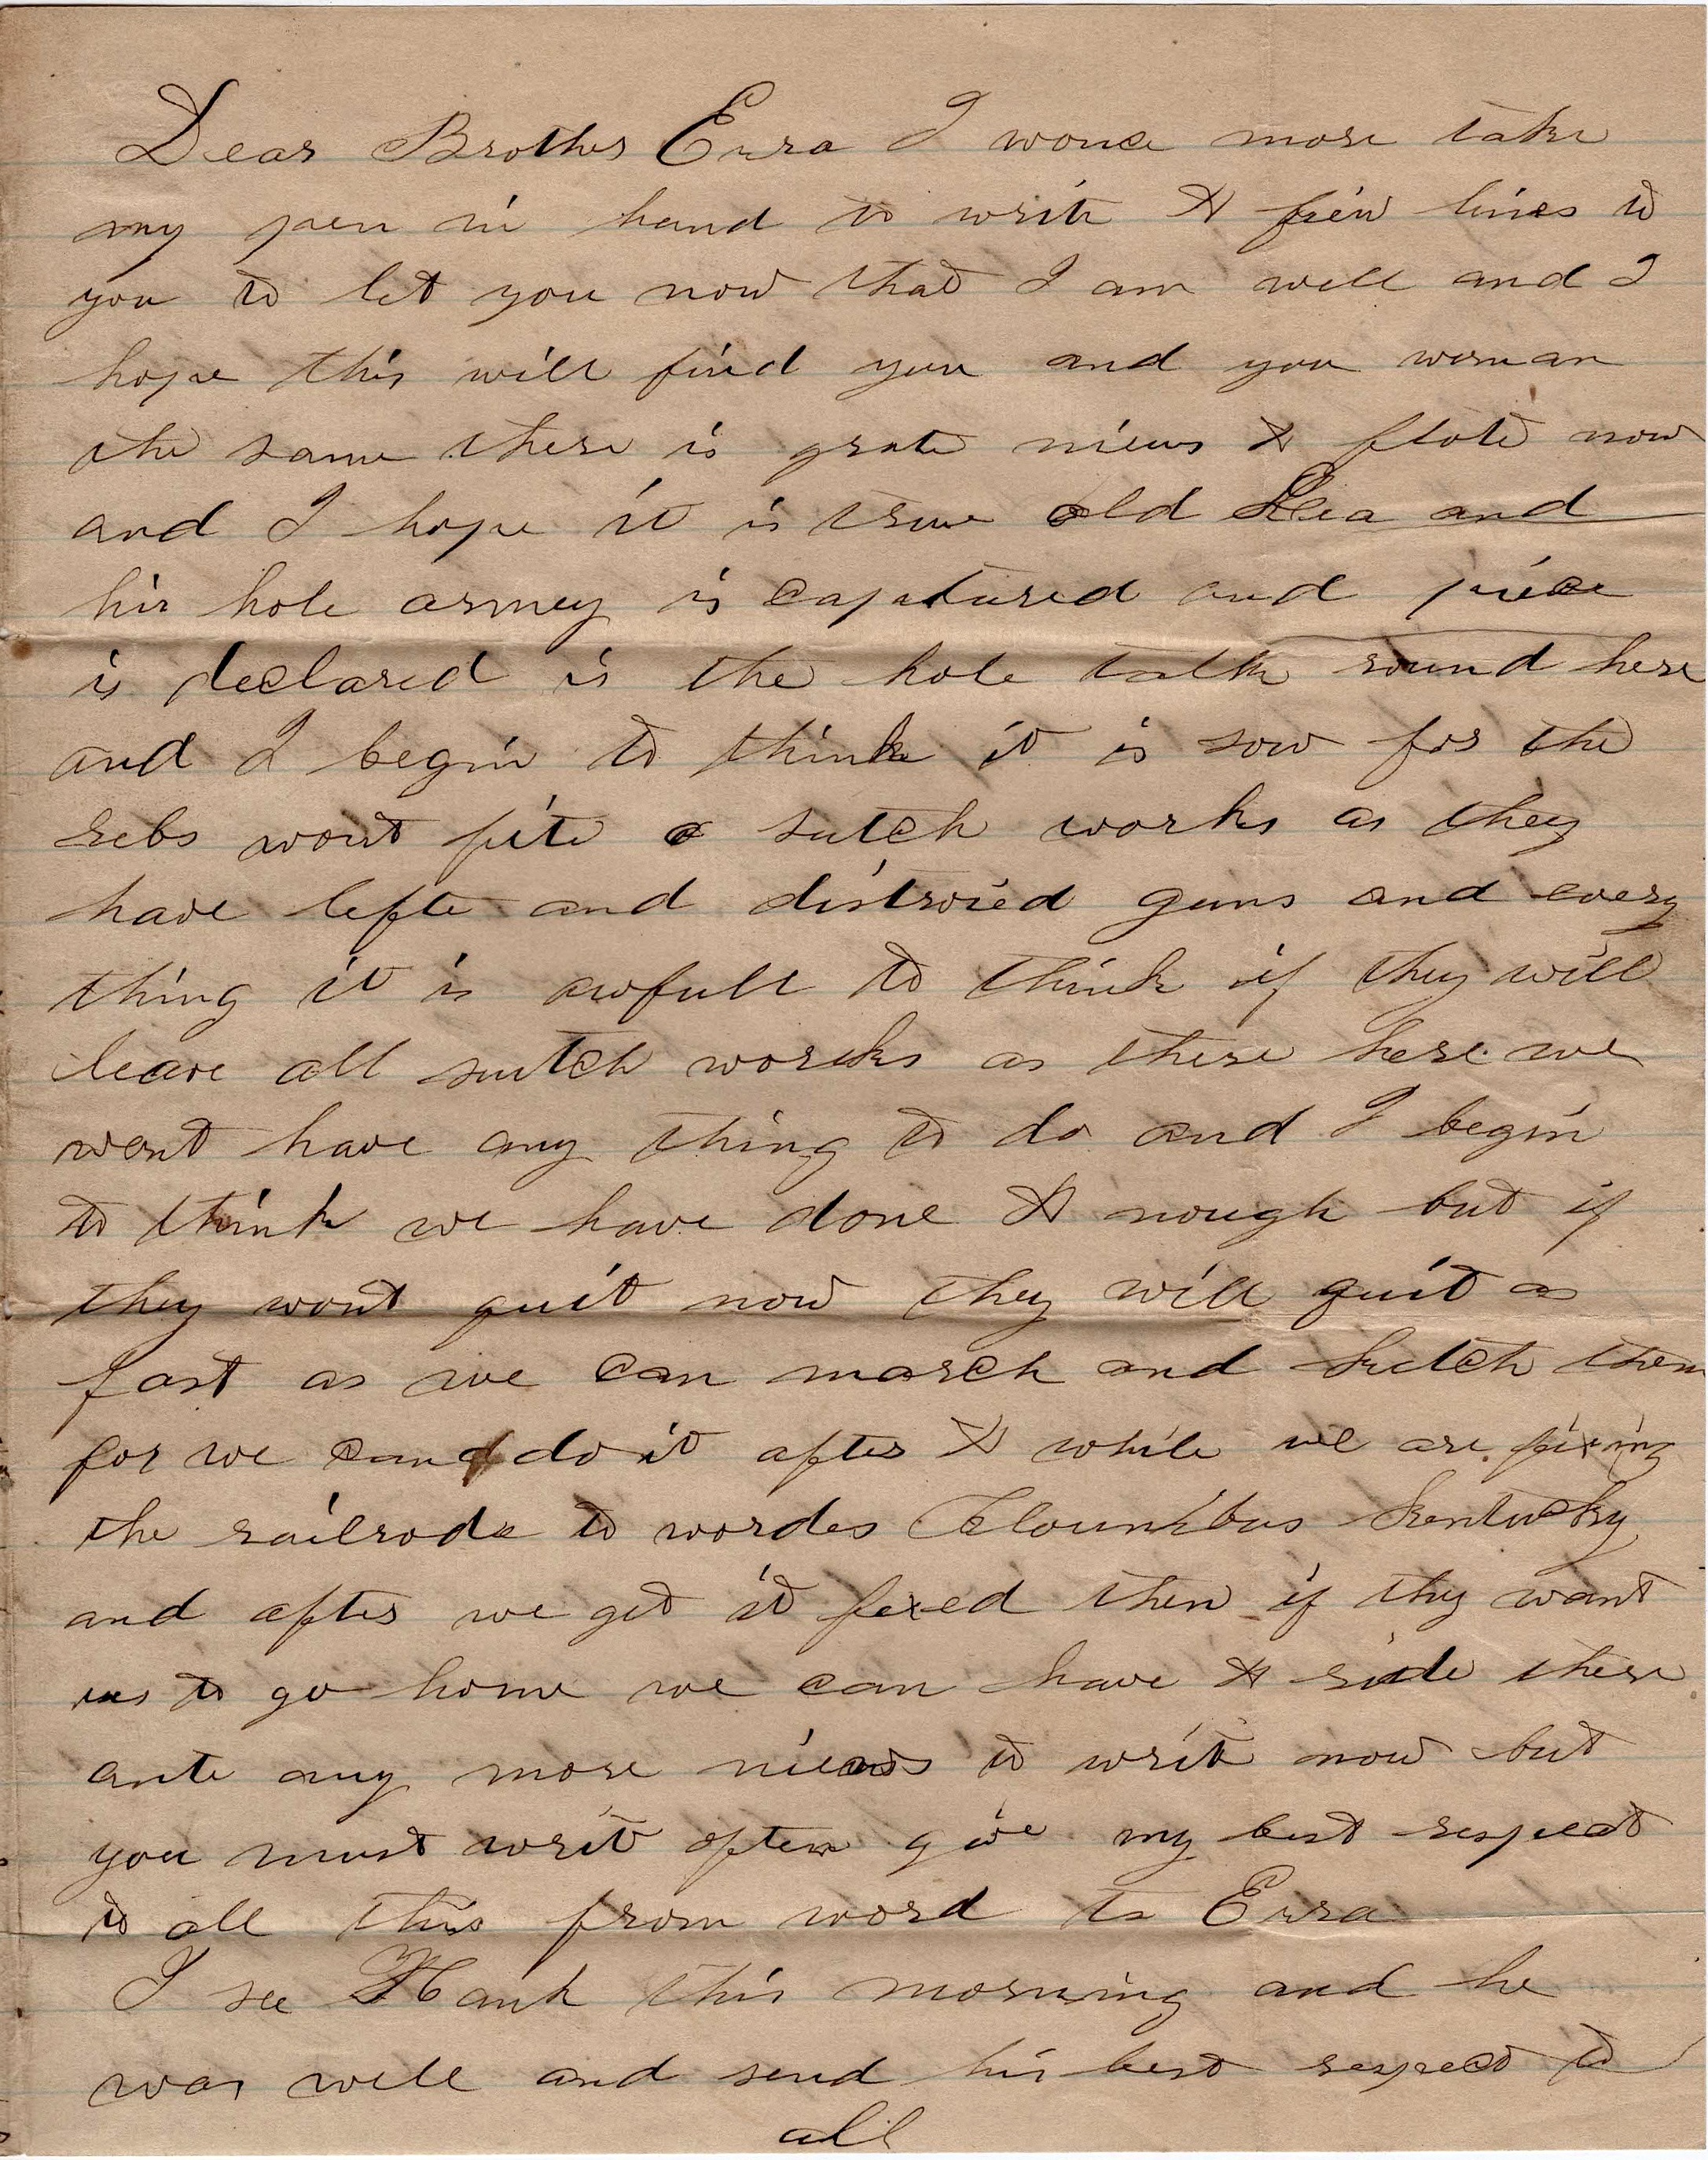 Dear Brother Ezra I wonce more take
my pen in hand to write A few lines to
you to let you now that I am well and I
hope this will find you and you woman
the same there is grate niews A flote now
and I hope it is true old Lea and
his hole armey is captured and piece
is declared is the hole talk round here
and I begin to think it is sow for the
rebs wont fite a sutch works as they
have lefte and distroied guns and every
thing it is awfull to think if they will
leave all sutch works as these here we
wont have any thing to do and I begin
to think we have done A nough but if
they wont quit now they will quit as
fast as we can march and ketch them
for we can do it after A while we are fixing
the railrode to wordes Cloumbus Kentucky
and after we get it fixed then if thy want
us to go home we can have A ride there
ante any more niews to writ now but
you must writ often give my best respect
to all this from word to Ezra
I see Hank this morning and he
was well and send his best respect to
all